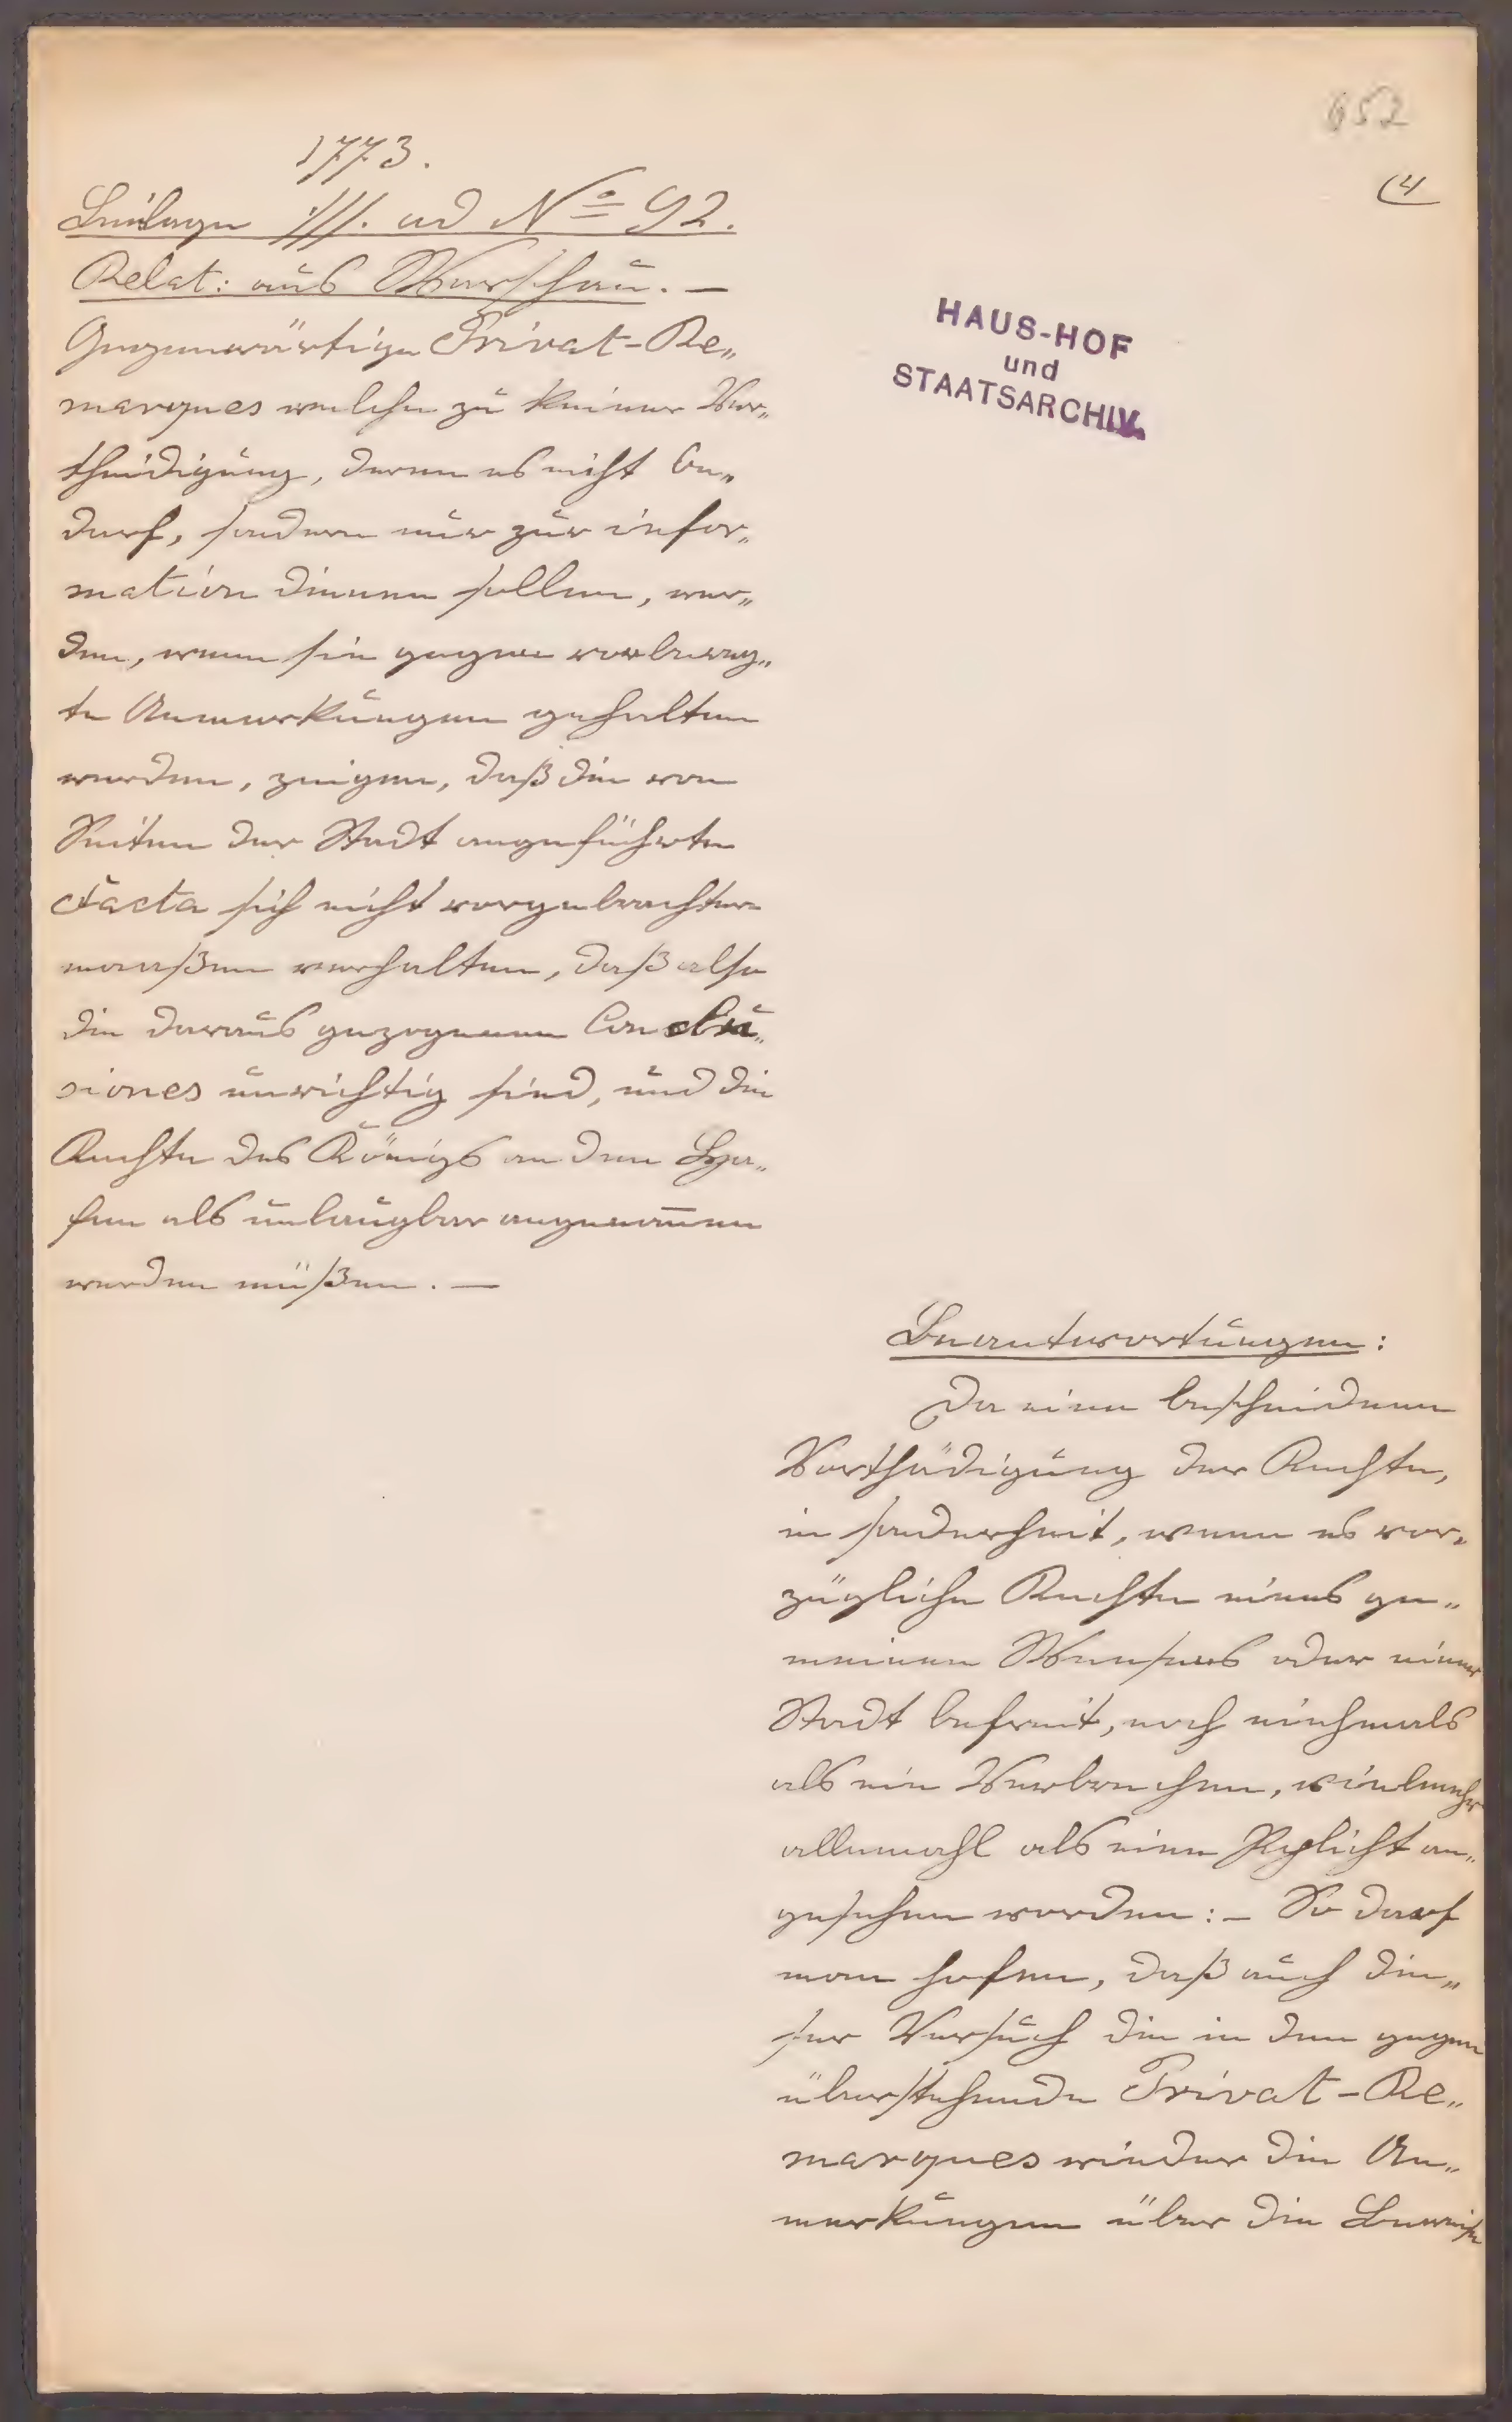 652
(4
1773.
Beilage ://. ad No 92.
Relat: aus Warschau. —
HAUS-HOF
und
STAATSARCHIV.
Gegenwärtige Privat-Re„
marques welche zu keiner Ver„
theidigung, deren es nicht be„
darf, sondern nur zur infor„
mation dienen sollen, wer„
den, wenn sie gegen vorbereg„
te Anmerkungen gehalten
werden, zeigen, daß die von
Seiten der Stadt angeführte
Facta sich nicht vorgebrachter
maaßen verhalten, daß also
die daraus gezogenen Conclu„
siones unrichtig sind, und die
Rechte des Königs an dem Ha„
fen als unlaugbar angenomen
werden müßen. —
Beantwortungen:
Da eine bescheidene
Verthädigung der Rechte,
in sonderheit, wenn es vor„
zügliche Rechte eines ge„
meinen Wesens oder einer
Stadt betreft, noch niehmals
als ein Verbrechen, vielmehr
allemahl als eine Pflicht an„
gesehen worden: – So darf
man hofen, daß auch die„
ser Versuch die in dem gegen
überstehende Privat-Re„
marques wieder die An„
merkungen über die Beweise